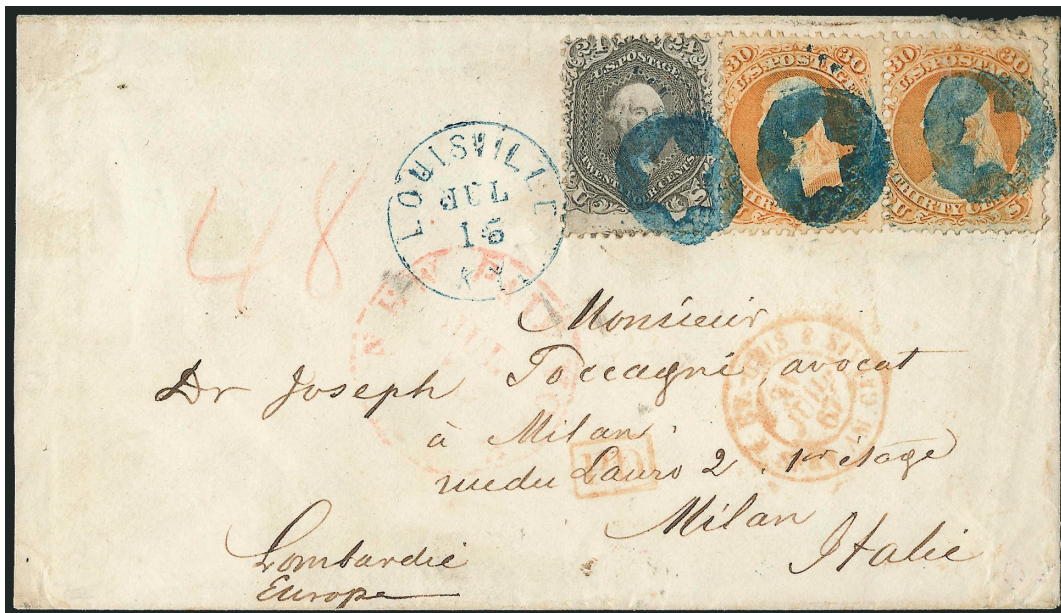 24 24
U.S. POSTAGE
30 30
U.S. POSTAGE
30 30
U.S. POSTAGE
THIRTY CENTS
U S
LOUISVILLE
JUL
15
KY
48
NEW
JUL
PD
Monsieur
Dr Joseph Toccagni, avocat
à Milan.
rue du Lauro 2. 1er étage
Milan
Italie
Lombardie
Europe